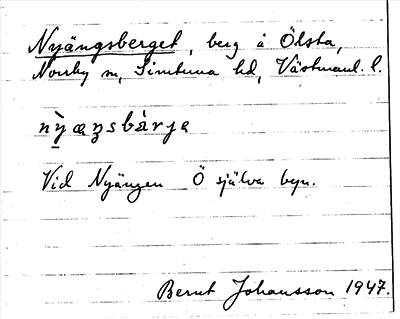 Nyängsberget, berg å Ölsta,
Norrby sn, Simtuna hd, Västmanl. l.
nỳæŋsbàrjə
Vid Nyängen Ö själva byn.
Bernt Johansson 1947.